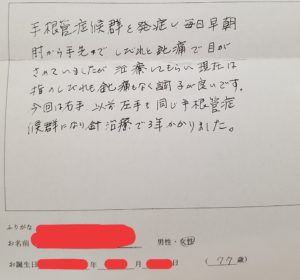 手根管症候群を発症し毎日早朝
肘から手先まで しびれと鈍痛で目が
さめていましたが 治療してもらい 現在は
指のしびれも鈍痛もなく調子が良いです。
今回は右手 以前左手も同じ手根管症
候群になり針治療で3年かかりました。
ふりがな
お名前 男性・女性
お誕生日 年 月 日 (77歳)